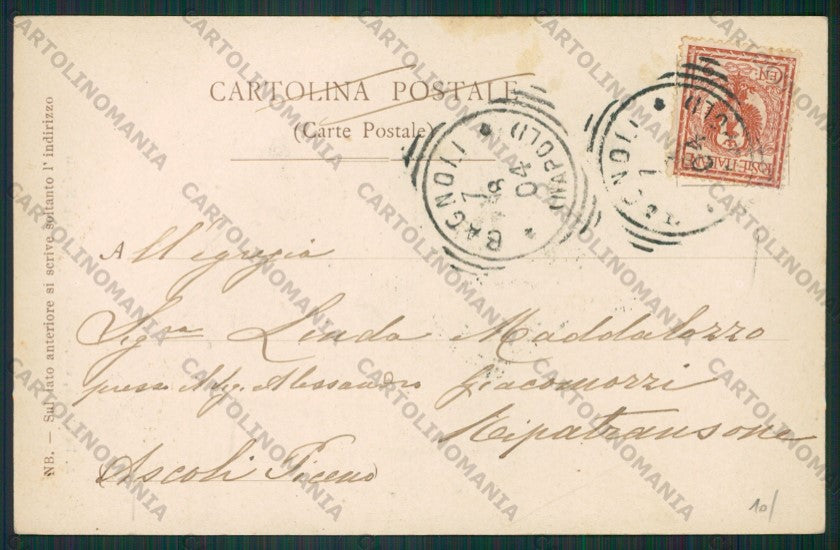 CARTOLINA POSTALE
(Carte Postale)
NB. — Sul lato anteriore si scrive soltanto l' indirizzo
BAGNOLI
(NAPOLI)
7
8
04
BAGNOLI
7
04
All'egregia
Sigra Linda Maddalozzo
presso Alessandro Giacomozzi
Ripatransone
(Ascoli Piceno)
10/
CARTOLINOMANIA